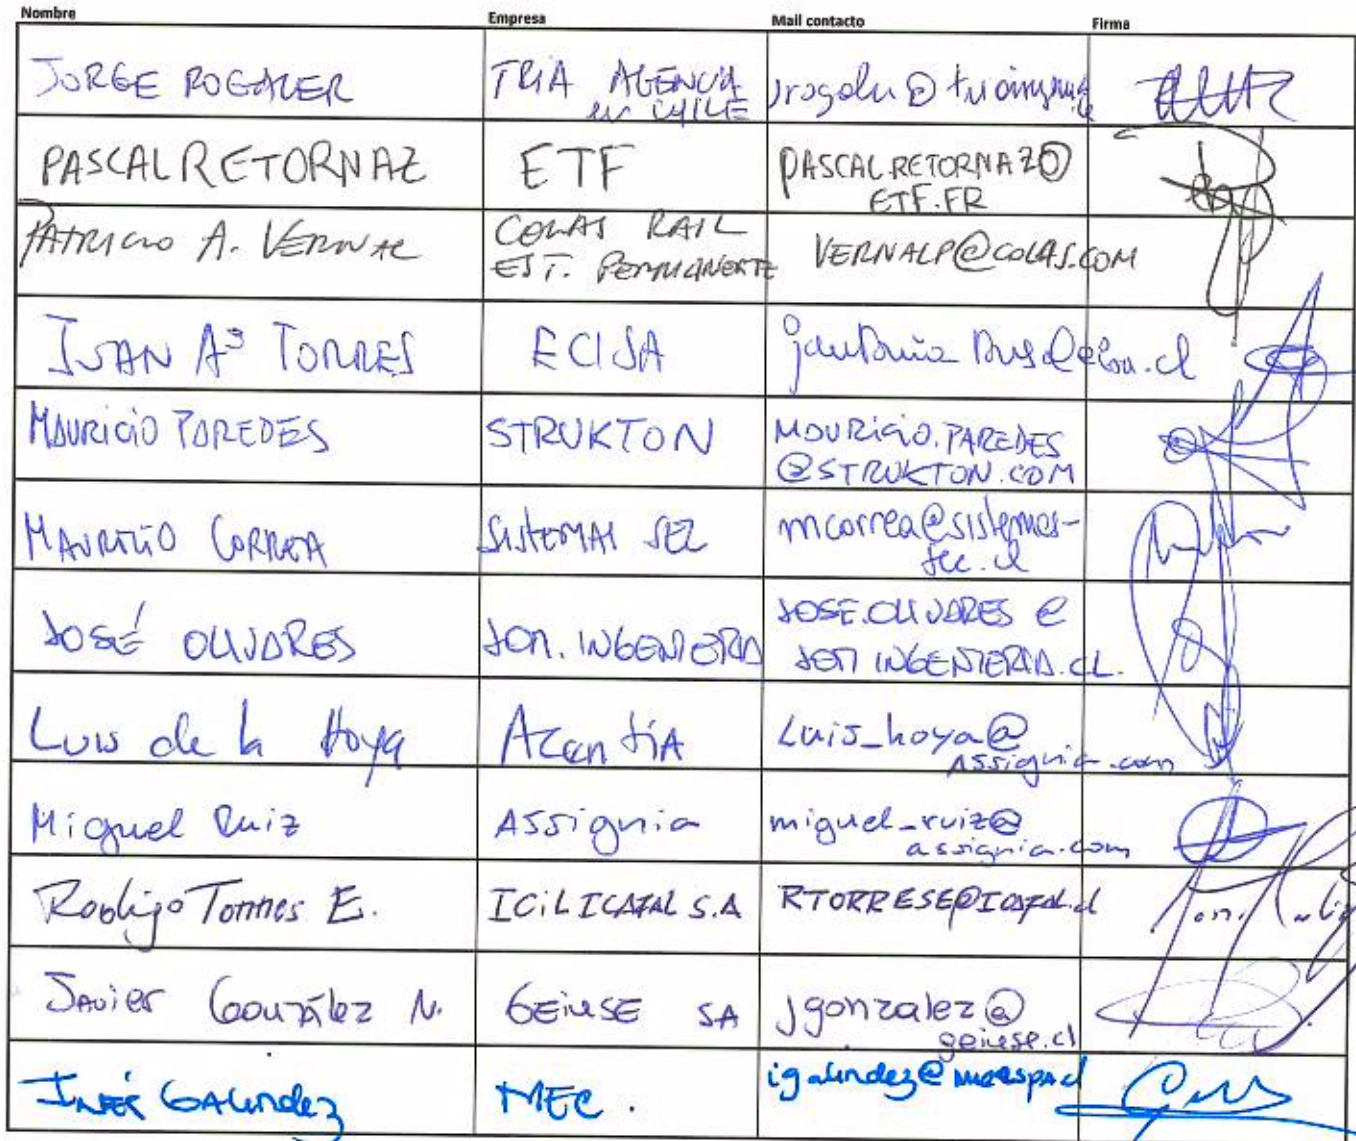 Nombre Empresa Mail contacto Firma
JORGE ROGALER TRIA AGENCIA
en CHILE
PASCAL RETORNAZ ETF PASCAL.RETORNAZ@
ETF.FR
PATRICIO A. VERNAL COLAS RAIL VERNALP@COLAS.COM
EST. PERMANENTE
JUAN Aª TORRES ECISA
MAURICIO PAREDES STRUKTON MAURICIO.PAREDES
@STRUKTON.COM
MAURICIO CORREA SISTEMAS SEC mcorrea@sistemas-
sec.cl
JOSÉ OLIVARES JOM. INGENIERIA JOSE.OLIVARES @
JOM INGENIERIA.CL.
Luis de la Hoya Acentia Luis_hoya@
Assignia.com
Miguel Ruiz Assignia miguel_ruiz@
assignia.com
Rodrigo Torres E. ICIL ICAFAL S.A RTORRESE@ICAFAL.cl
Javier González N. GEINSE SA jgonzalez@
geinse.cl
INÉS GALINDEZ MEC. igalindez@mecspa.cl